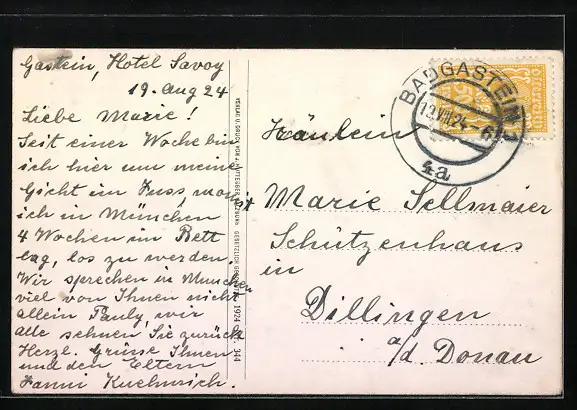 Gastein, Hotel Savoy
19. Aug 24
Liebe Marie!
Seit einer Woche bin
ich hier um meine
Gicht im Fuss, womit
ich in München
4 Wochen im Bett
lag, los zu werden
Wir sprechen in München
viel von Ihnen nicht
allein Pauly, wir
alle sehnen Sie zurück
Herzl. Grüsse Ihnen
und den Eltern
Fanni
1924
344
BADGASTEIN 1
19.VIII.24-6
4a
Fräulein
Marie Sellmaier
Schützenhaus
in
Dillingen
a/d. Donau